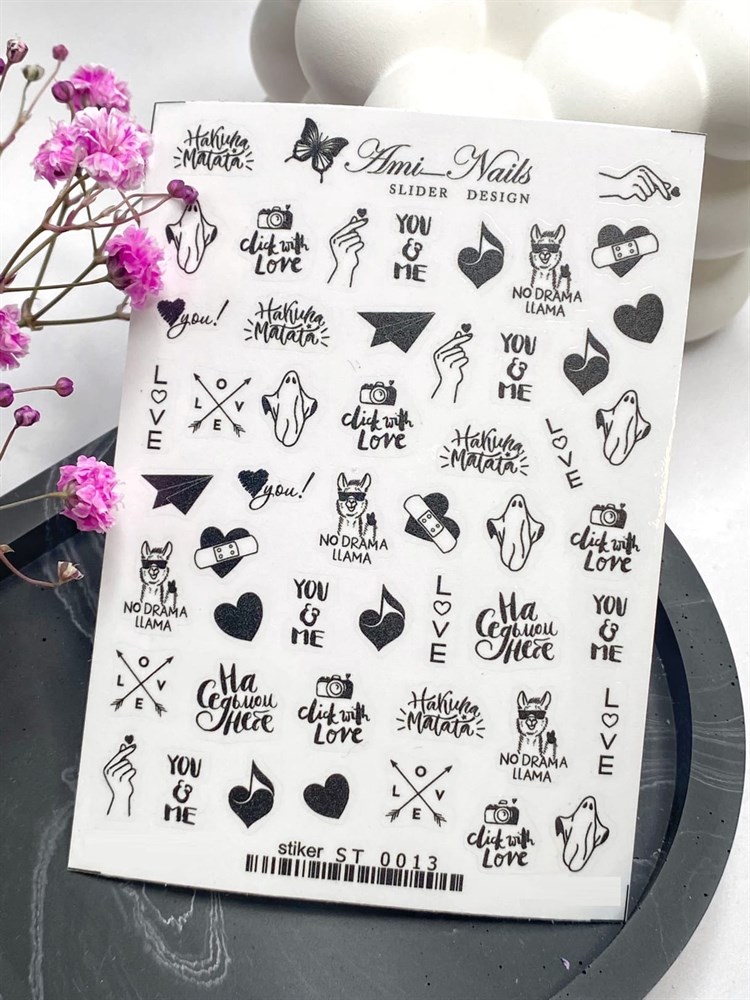 Hakuna
Matata
Ami_Nails
SLIDER DESIGN
click with
Love
YOU
&
ME
NO DRAMA
LLAMA
you!
Hakuna
Matata
YOU
&
ME
L
V
E
L O V E
click with
Love
Hakuna
Matata
L
V
E
you!
NO DRAMA
LLAMA
click with
Love
NO DRAMA
LLAMA
YOU
&
ME
L
V
E
На
Седьмом
Небе
YOU
&
ME
L O V E
На
Седьмом
Небе
click with
Love
Hakuna
Matata
NO DRAMA
LLAMA
L
V
E
YOU
&
ME
L O V E
click with
Love
stiker ST 0013